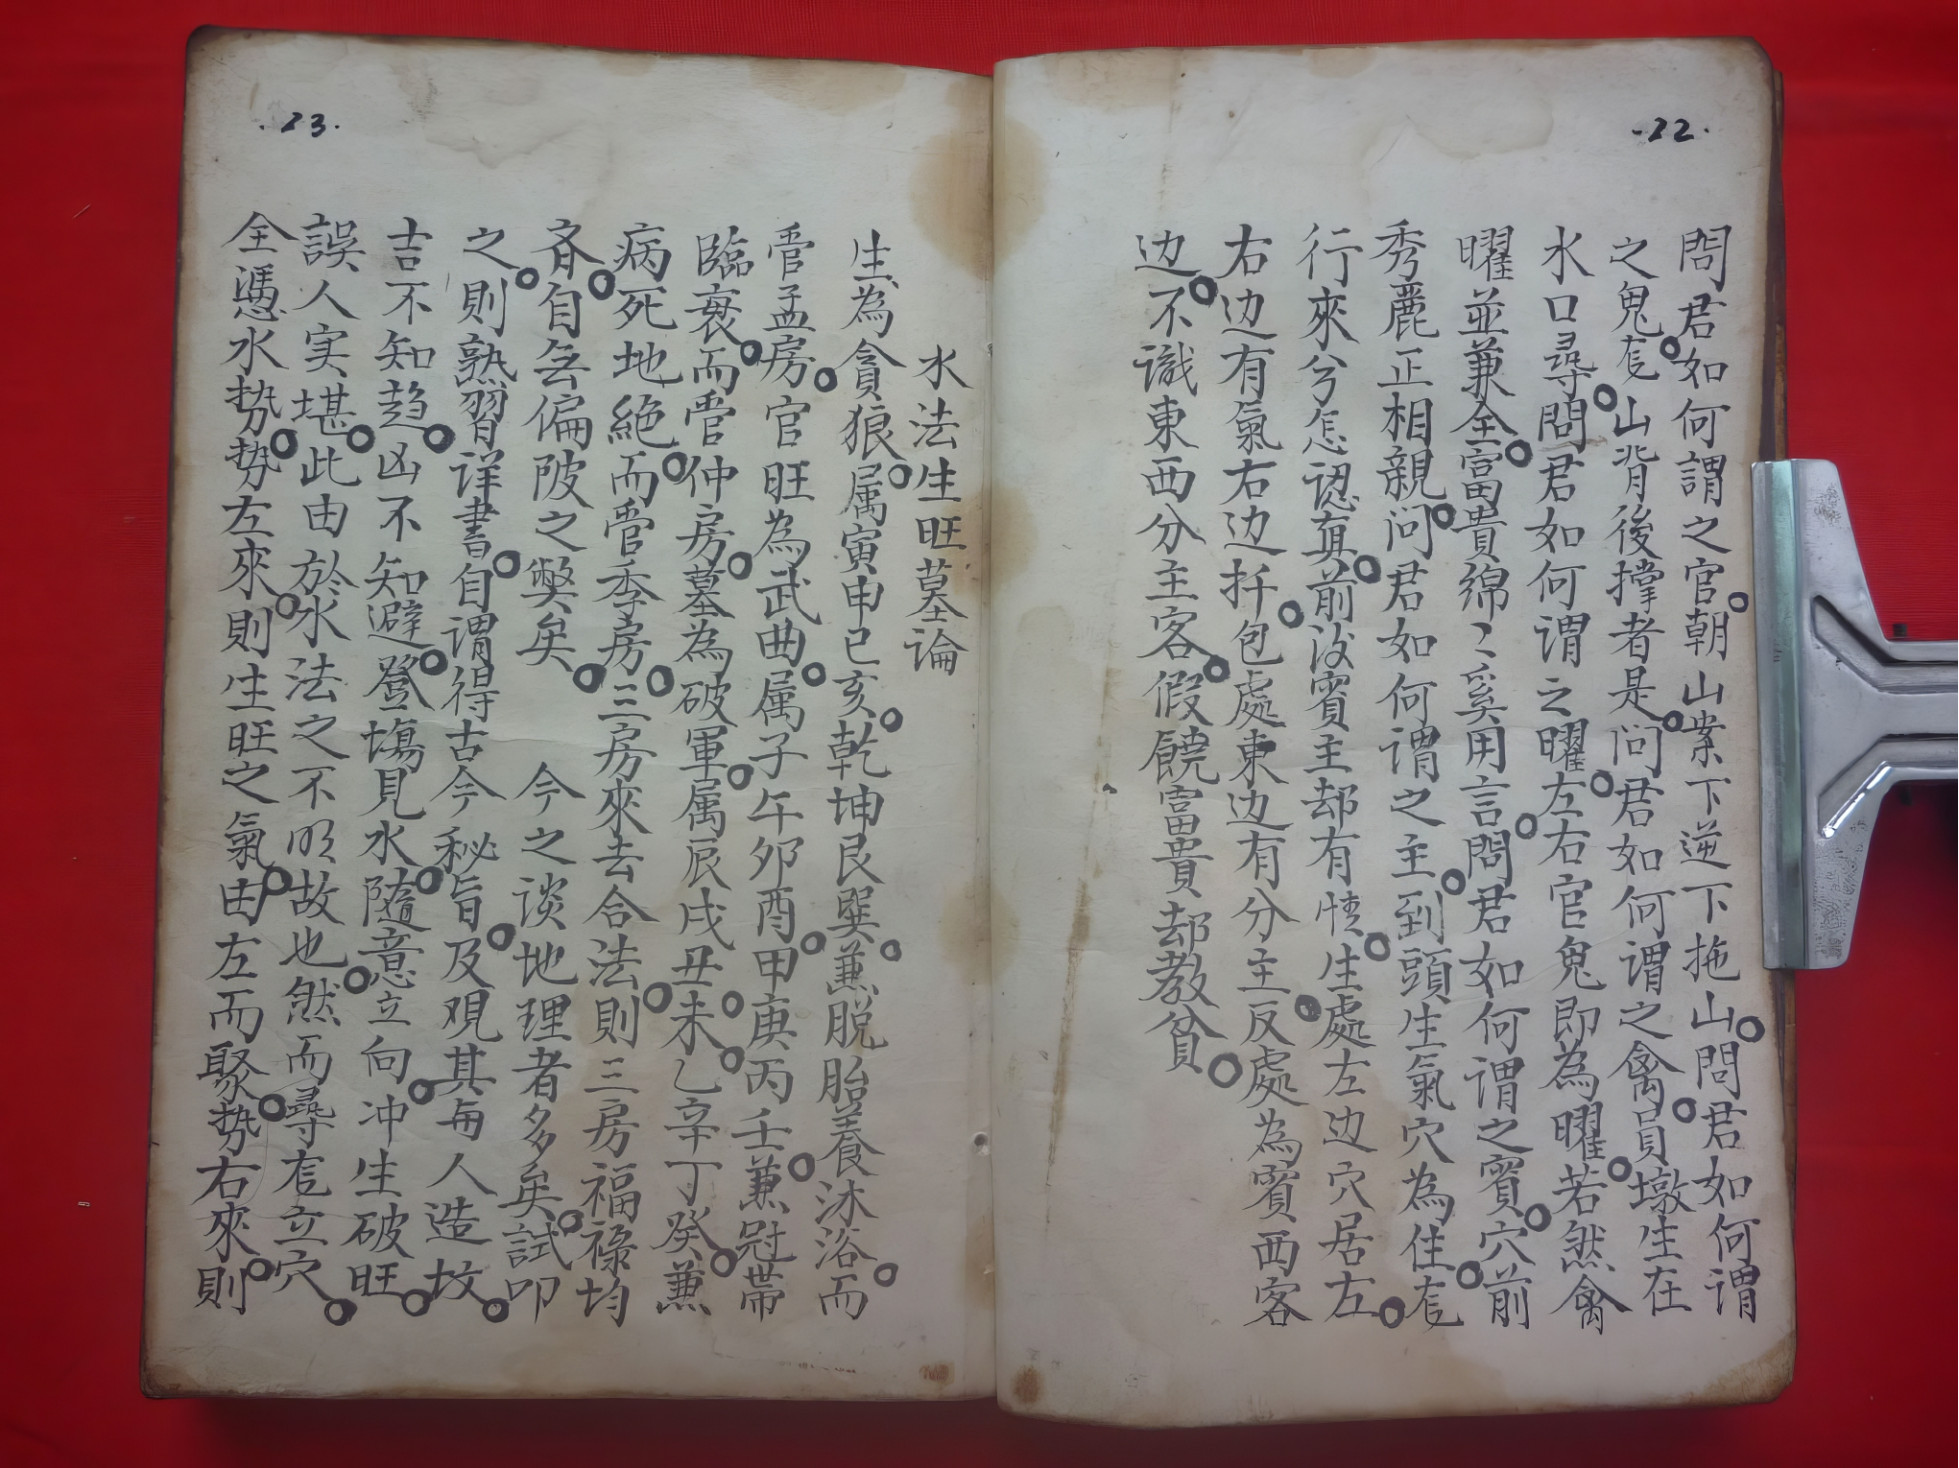 ·22·
問君如何謂之官朝山案下逆下拖山問君如何謂
之鬼㝎山背後撑者是问君如何谓之禽員墩生在
水口尋問君如何谓之曜左右官鬼即為曜若然禽
曜並兼全富貴綿〻奚用言問君如何谓之賓穴前
秀麗正相親问君如何谓之主到頭生氣穴為住㝎
行來兮怎認真前沒賓主却有情生處左边穴居左
右边有氣右边扦包處東边有分主反處為賓西客
边不識東西分主客假饒富貴却教貧
·23·
水法生旺墓论
生為貪狼属寅申巳亥乾坤艮巽兼脱胎養沐浴而
管孟房官旺為武曲属子午夘酉甲庚丙壬兼冠帶
臨衰而管仲房墓為破軍属辰戌丑未乙辛丁癸兼
病死地絕而管季房三房來去合法則三房福禄均
斉自無偏陂之弊矣 今之谈地理者多矣試叩
之則熟習详書自谓得古今秘旨及观其每人造坟
吉不知趋凶不知避登塲見水隨意立向冲生破旺
誤人実堪此由於水法之不明故也然而尋㝎立穴
全憑水势势左來則生旺之氣由左而聚势右來則